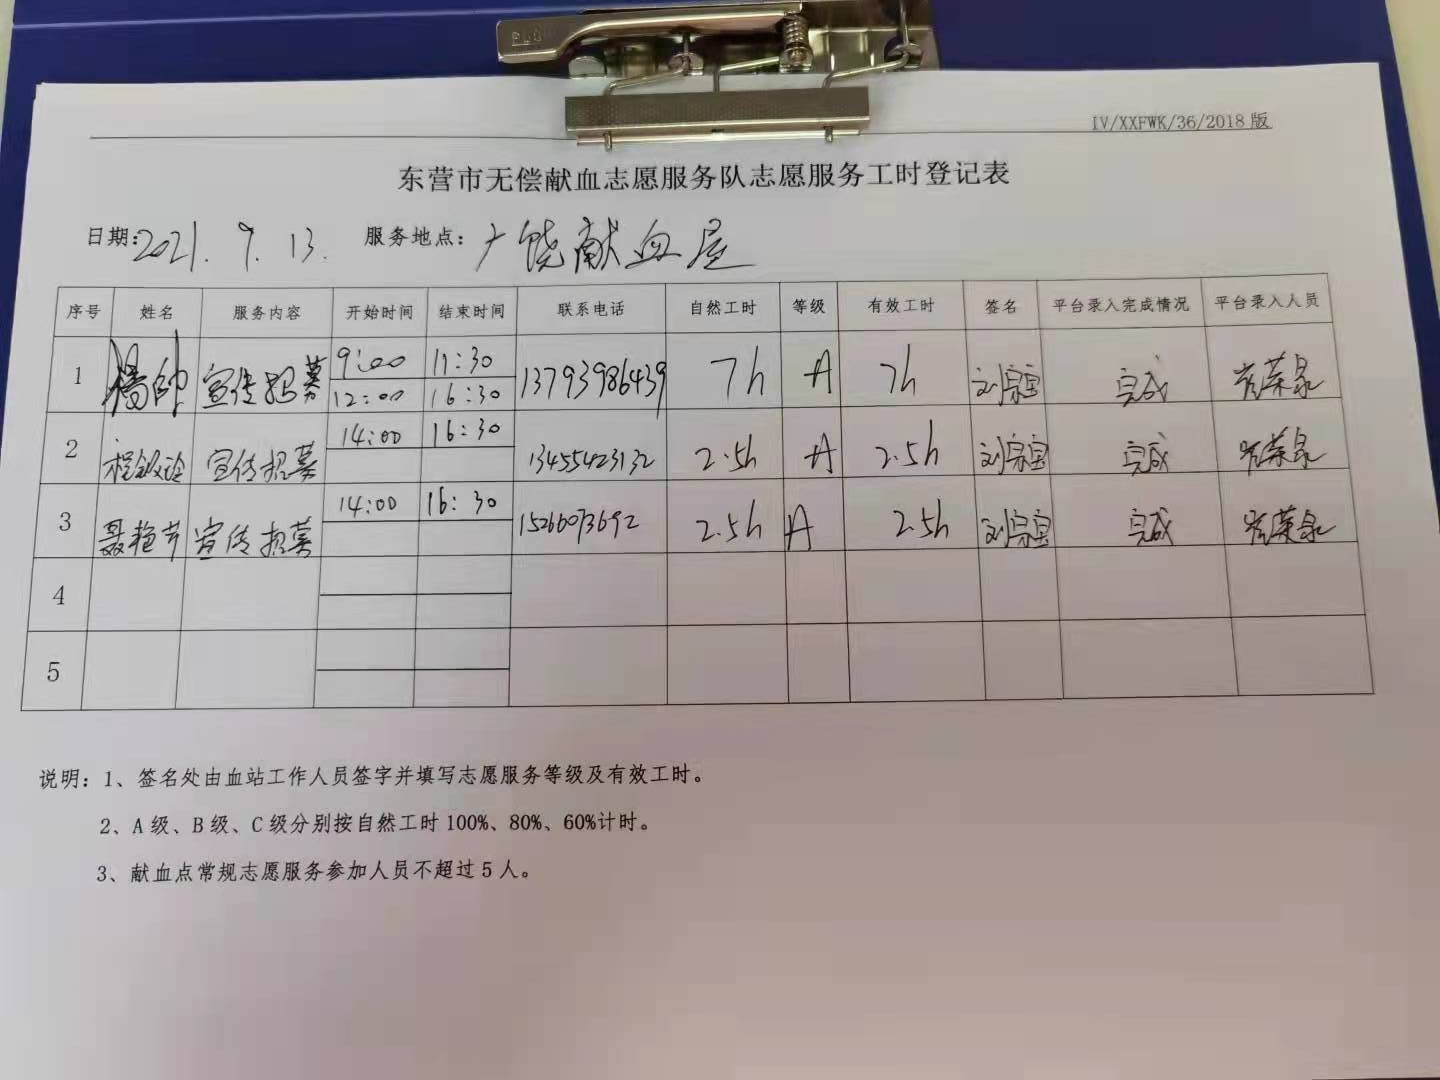 IV/XXFWK/36/2018 版
东营市无偿献血志愿服务队志愿服务工时登记表
日期:2021. 9. 13. 服务地点: 广饶献血屋
序号 姓名 服务内容 开始时间 结束时间 联系电话 自然工时 等级 有效工时 签名 平台录入完成情况 平台录入人员
1 杨帅 宣传招募 9:00 11:30 13793986439 7h A 7h 刘宗宝 完成
12:00 16:30
2 宣传招募 14:00 16:30 13455423132 2.5h A 2.5h 刘宗宝 完成
3 聂艳芹 宣传招募 14:00 16:30 15266073692 2.5h A 2.5h 刘宗宝 完成
4
5
说明: 1、签名处由血站工作人员签字并填写志愿服务等级及有效工时。
2、A 级、B 级、C 级分别按自然工时 100%、80%、60%计时。
3、献血点常规志愿服务参加人员不超过 5 人。